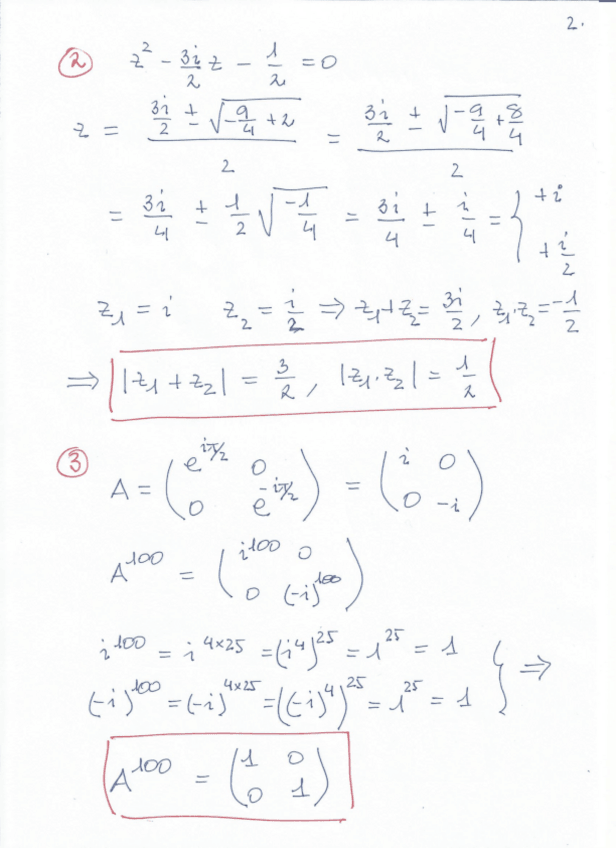 2.
② z² - 3i/2 z - 1/2 = 0
z = (3i/2 ± √(-9/4 + 2))/2 = (3i/2 ± √(-9/4 + 8/4))/2
= 3i/4 ± 1/2 √(-1/4) = 3i/4 ± i/4 = { +i
+i/2
z₁ = i z₂ = i/2 ⇒ z₁+z₂ = 3i/2, z₁·z₂ = -1/2
⇒ |z₁ + z₂| = 3/2, |z₁·z₂| = 1/2
③ A = (e^{iπ/2} 0 ; 0 e^{-iπ/2}) = (i 0 ; 0 -i)
A¹⁰⁰ = (i¹⁰⁰ 0 ; 0 (-i)¹⁰⁰)
i¹⁰⁰ = i^{4×25} = (i⁴)²⁵ = 1²⁵ = 1
(-i)¹⁰⁰ = (-i)^{4×25} = ((-i)⁴)²⁵ = 1²⁵ = 1 } ⇒
A¹⁰⁰ = (1 0 ; 0 1)